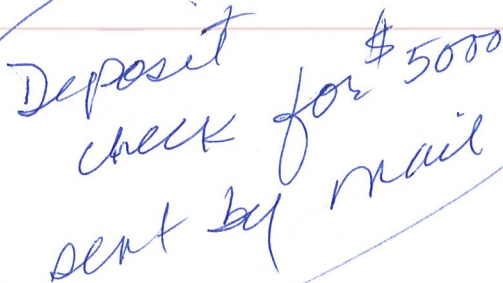 Deposit
check for $5000
sent by mail